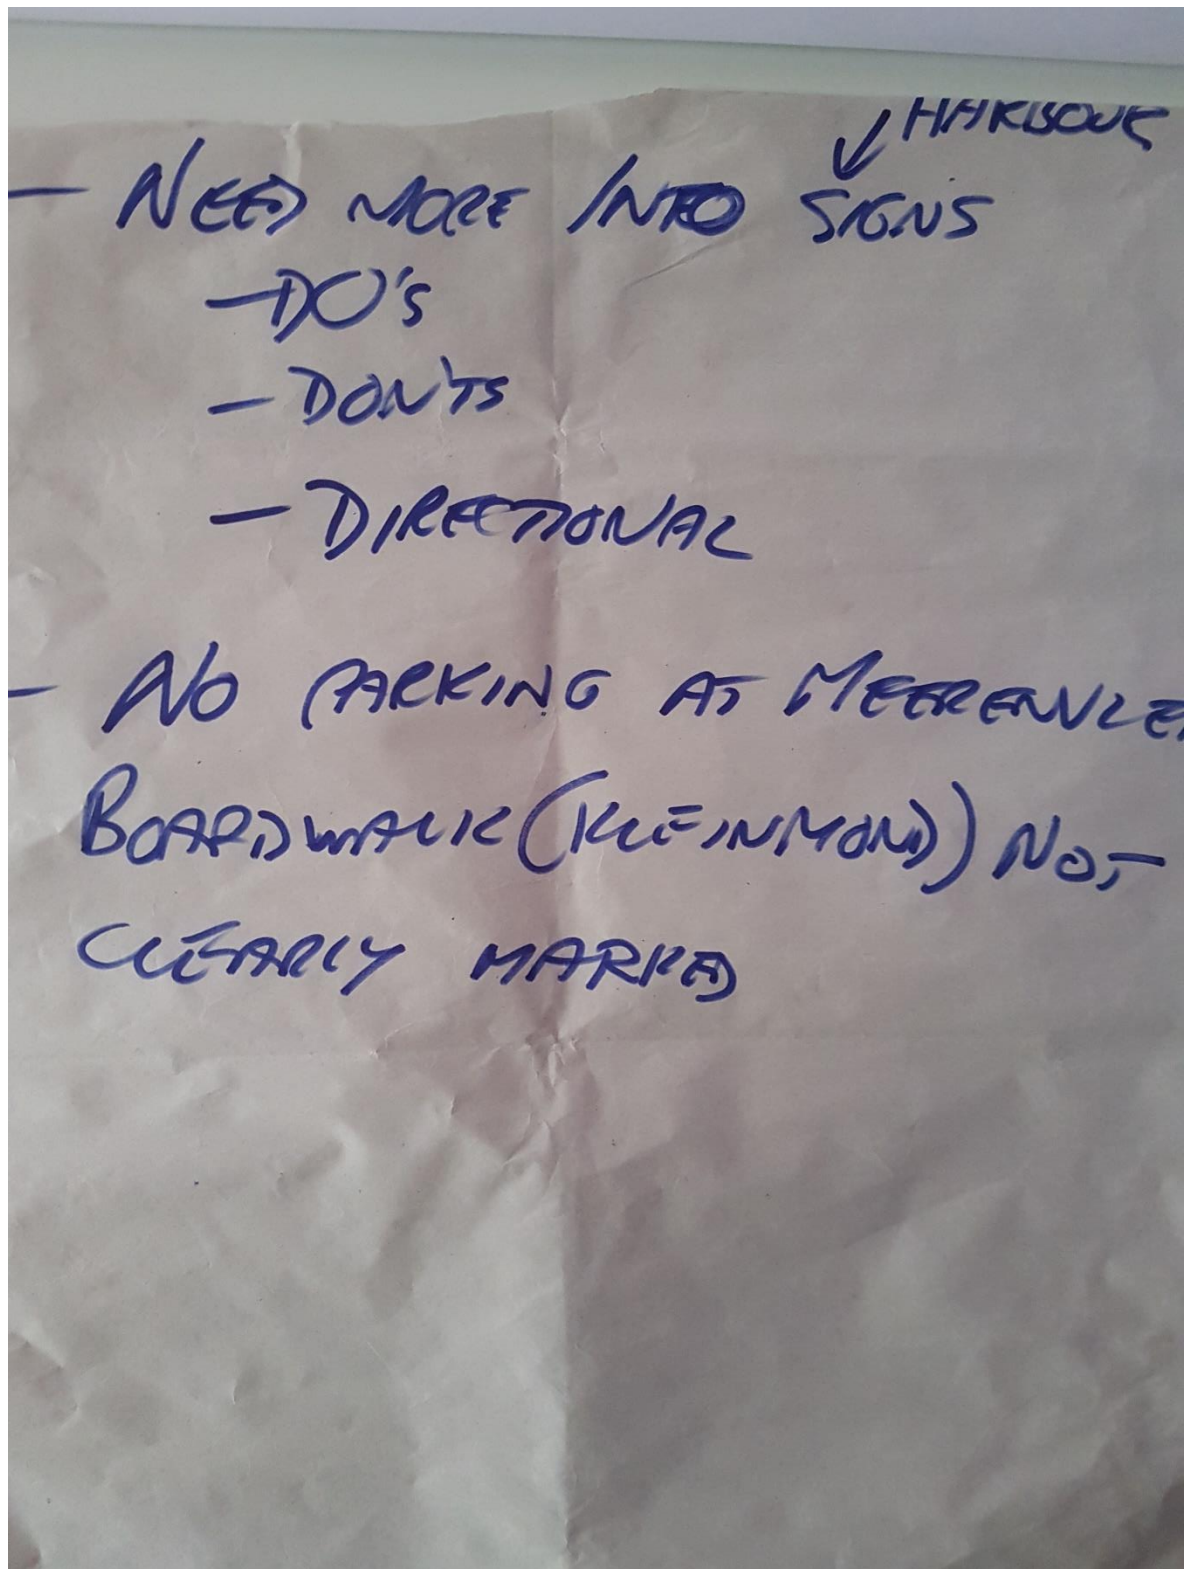 ↓ HARBOUR
- NEED MORE INFO SIGNS
- DO'S
- DON'TS
- DIRECTIONAL
- NO PARKING AT MEERENVLEI
BOARDWALK (KLEINMOND) NOT
CLEARLY MARKED